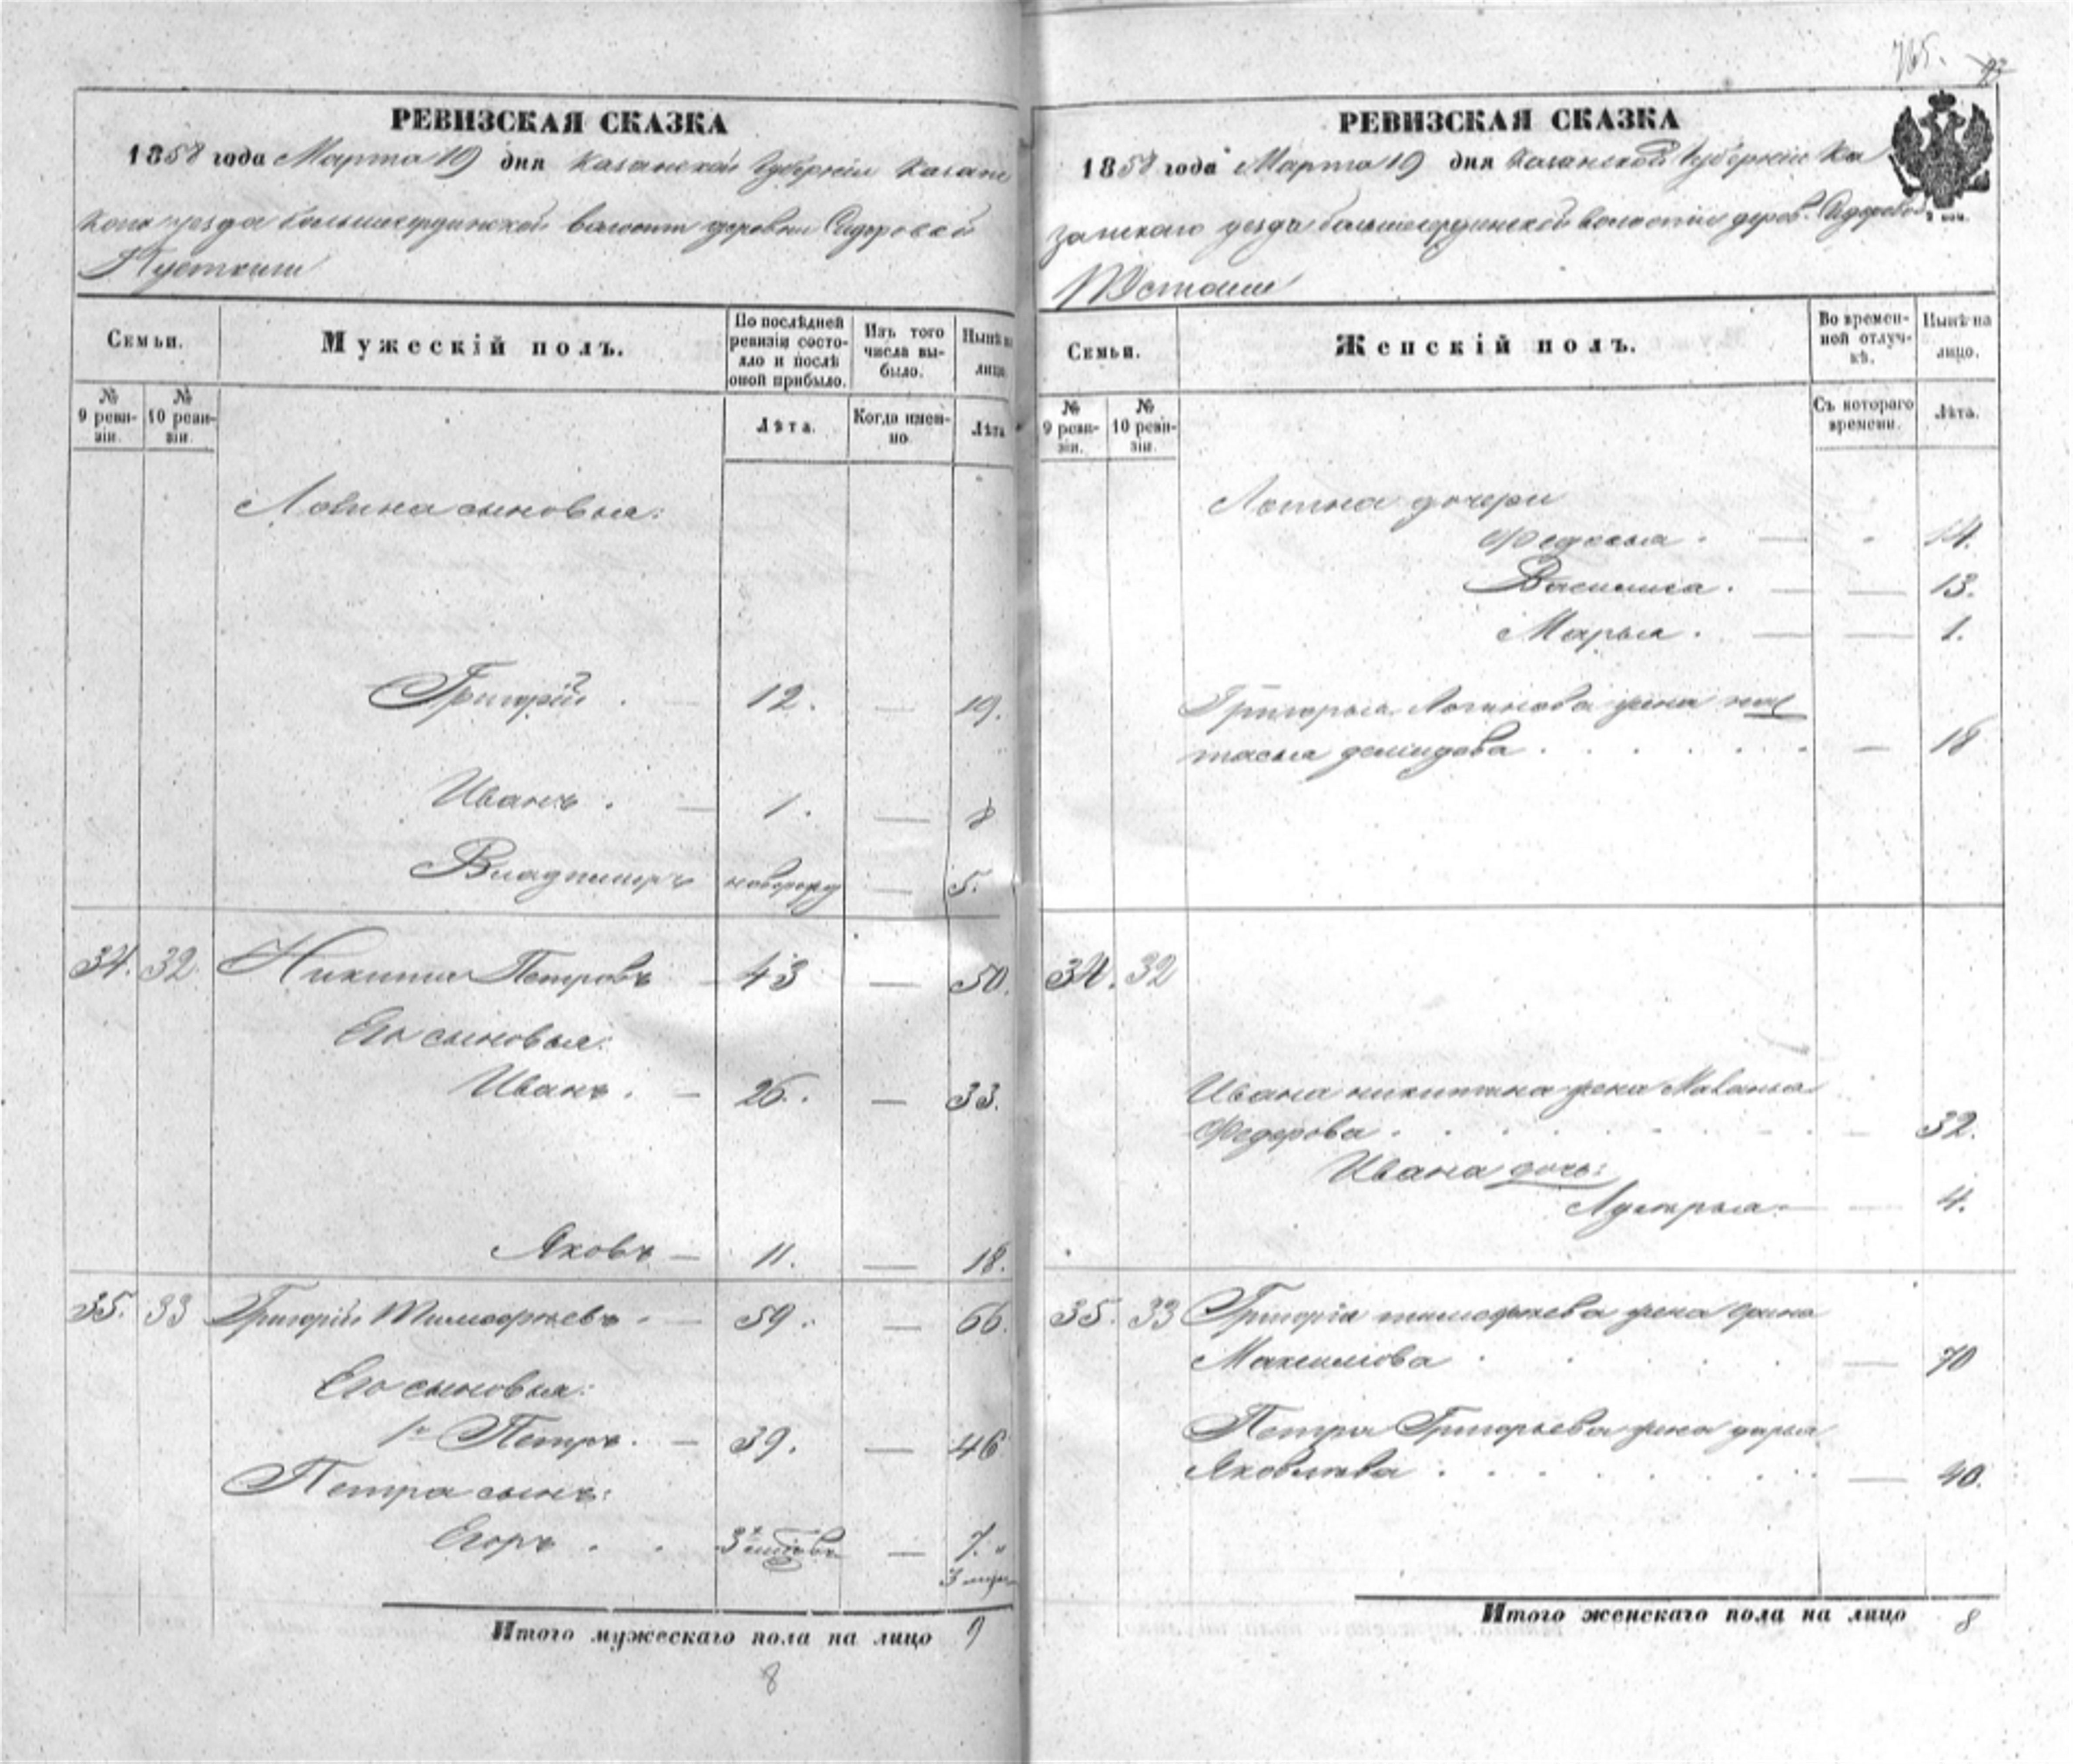 РЕВИЗСКАЯ СКАЗКА
1858 года Марта 19 дня Казанской Губерніи Казан
уезда волости деревни Сидоровой
Пустоши
Семьи.
Мужескій полъ.
По послѣдней ревизіи состо-
яло и послѣ
оной прибыло.
Изъ того
числа вы-
было.
Нынѣ на
лицо.
№
9 реви-
зіи.
№
10 реви-
зіи.
Лѣта.
Когда имен-
но
Лѣта
сыновья:
Григорій . — 12. — 19.
Иванъ . — 1. — 8
Владимиръ новорожд — 5.
34. 32. Никита Петровъ — 43 — 50.
Его сыновья:
Иванъ . — 26. — 33.
Яковъ — 11. — 18.
35. 33 Григорій Тимофѣевъ . — 59. — 66.
Его сыновья:
1й Петръ . — 39. — 46
Петра сынъ:
Егоръ . . 3х — 7. "
3
Итого мужескаго пола на лицо 9
8
765.
РЕВИЗСКАЯ СКАЗКА
1858 года Марта 19 дня Казанской Губерніи Ка
занскаго уезда волости дерев. Сидоровой
Пустоши
Семьи.
Женскій полъ.
Во времен-
ной отлуч-
кѣ.
Нынѣ на
лицо.
№
9 реви-
зіи.
№
10 реви-
зіи.
Съ котораго
времени.
Лѣта.
дочери
Федосья . — 14.
Василиса . — — 13.
Марья . — — 1.
Григорья Логинова жена Нас
тасья демидова . . . . . . — 18
34. 32
Ивана никитина жена Маланья
Федорова . . . . . . . . — 32.
Ивана дочь:
— — 4.
35. 33 Григорія тимофѣева жена Орина
Максимова . . . . . — 70
Петра Григорьева жена дарья
Яковлева . . . . . . . . — 40.
Итого женскаго пола на лицо 8